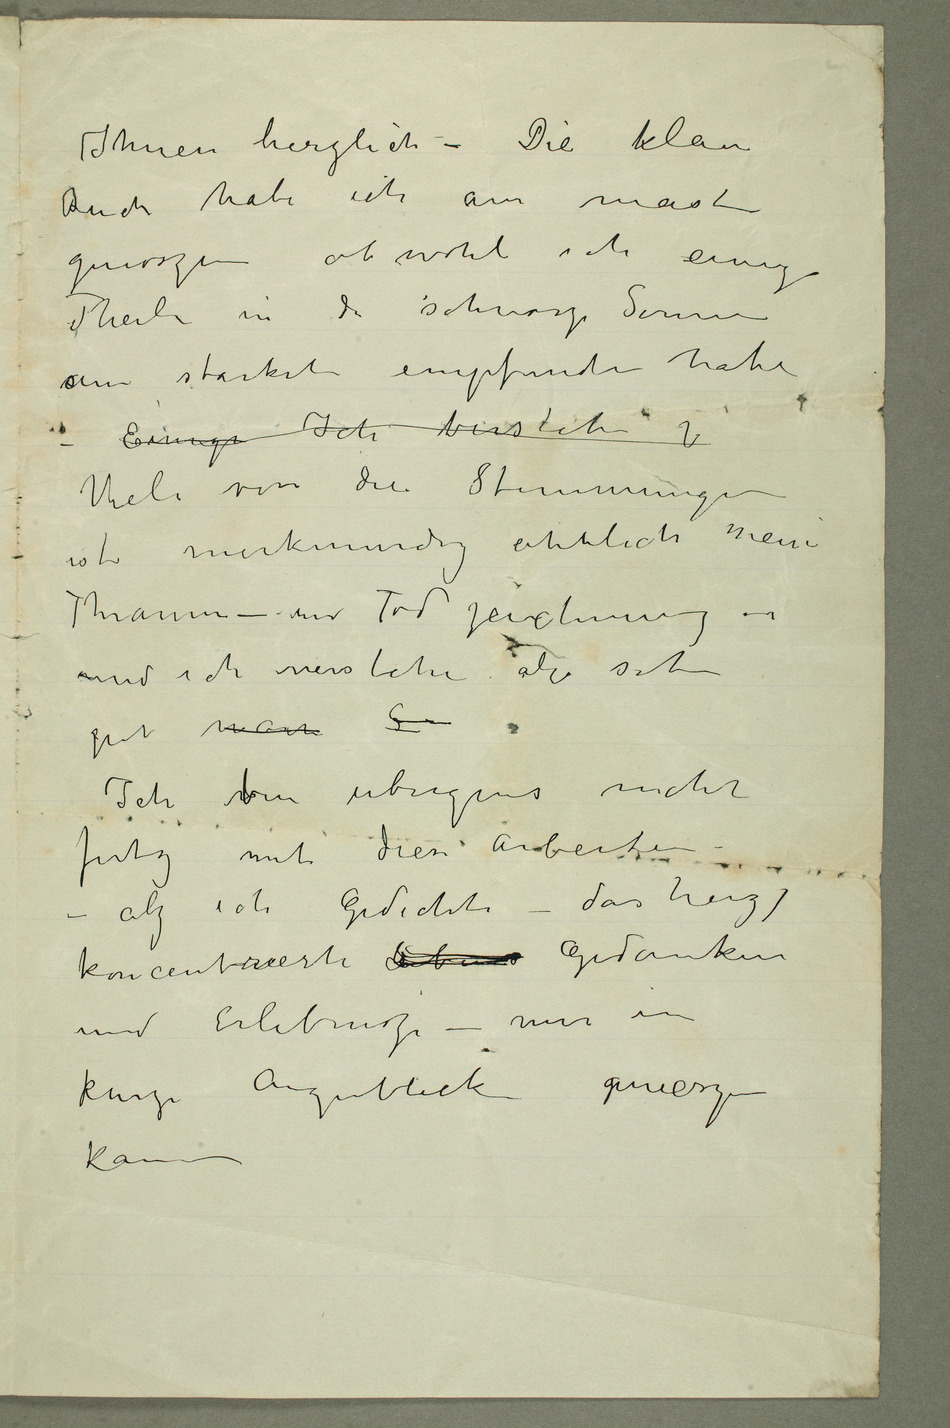 Ihnen herzlich – Die klein
Buch habe ich am mast
genoszen obwohl ich einige
Theile in de schwarze Sonne
am starkst empfunden habe
– Einige Ich verstehe
Viele von die Stimmungen
ist merkwurdig ähnlich mein
Thraum – und Tod zeichnung en
und ich verstehe alzo seh
gut
Ich bin ubrigens nicht
fertig mit diese Arbeiten –
– alz ich Gedichte – das heizt
koncentrierte Lebens Gedanken
und Erlebnisze – nur in
kurze Augenblicke genieszen
kann